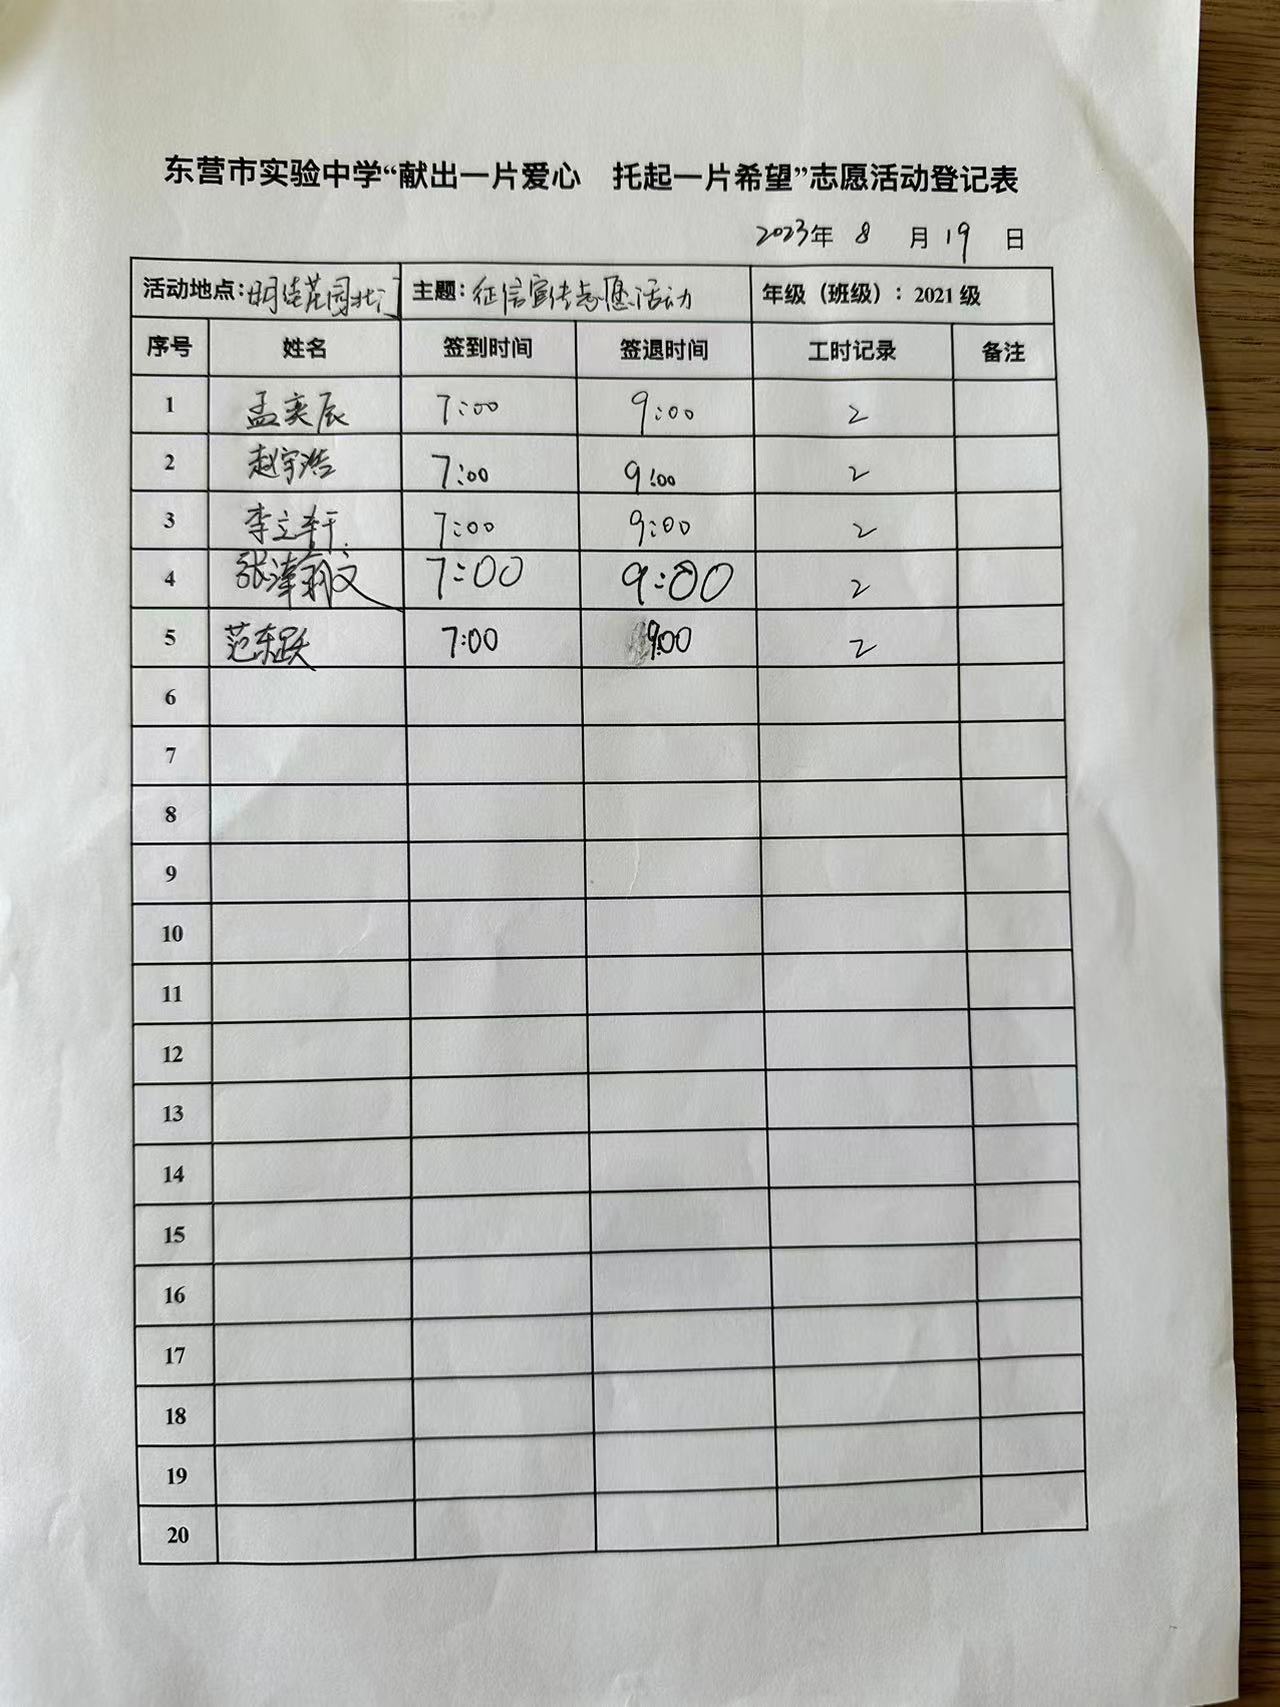 东营市实验中学“献出一片爱心 托起一片希望”志愿活动登记表
2023年 8 月 19 日
活动地点:明佳花园北门 主题:征信宣传志愿活动 年级（班级）：2021级
序号 姓名 签到时间 签退时间 工时记录 备注
1 孟奕辰 7:00 9:00 2
2 赵宇浩 7:00 9:00 2
3 李立轩 7:00 9:00 2
4 张 7:00 9:00 2
5 范东跃 7:00 9:00 2
6
7
8
9
10
11
12
13
14
15
16
17
18
19
20